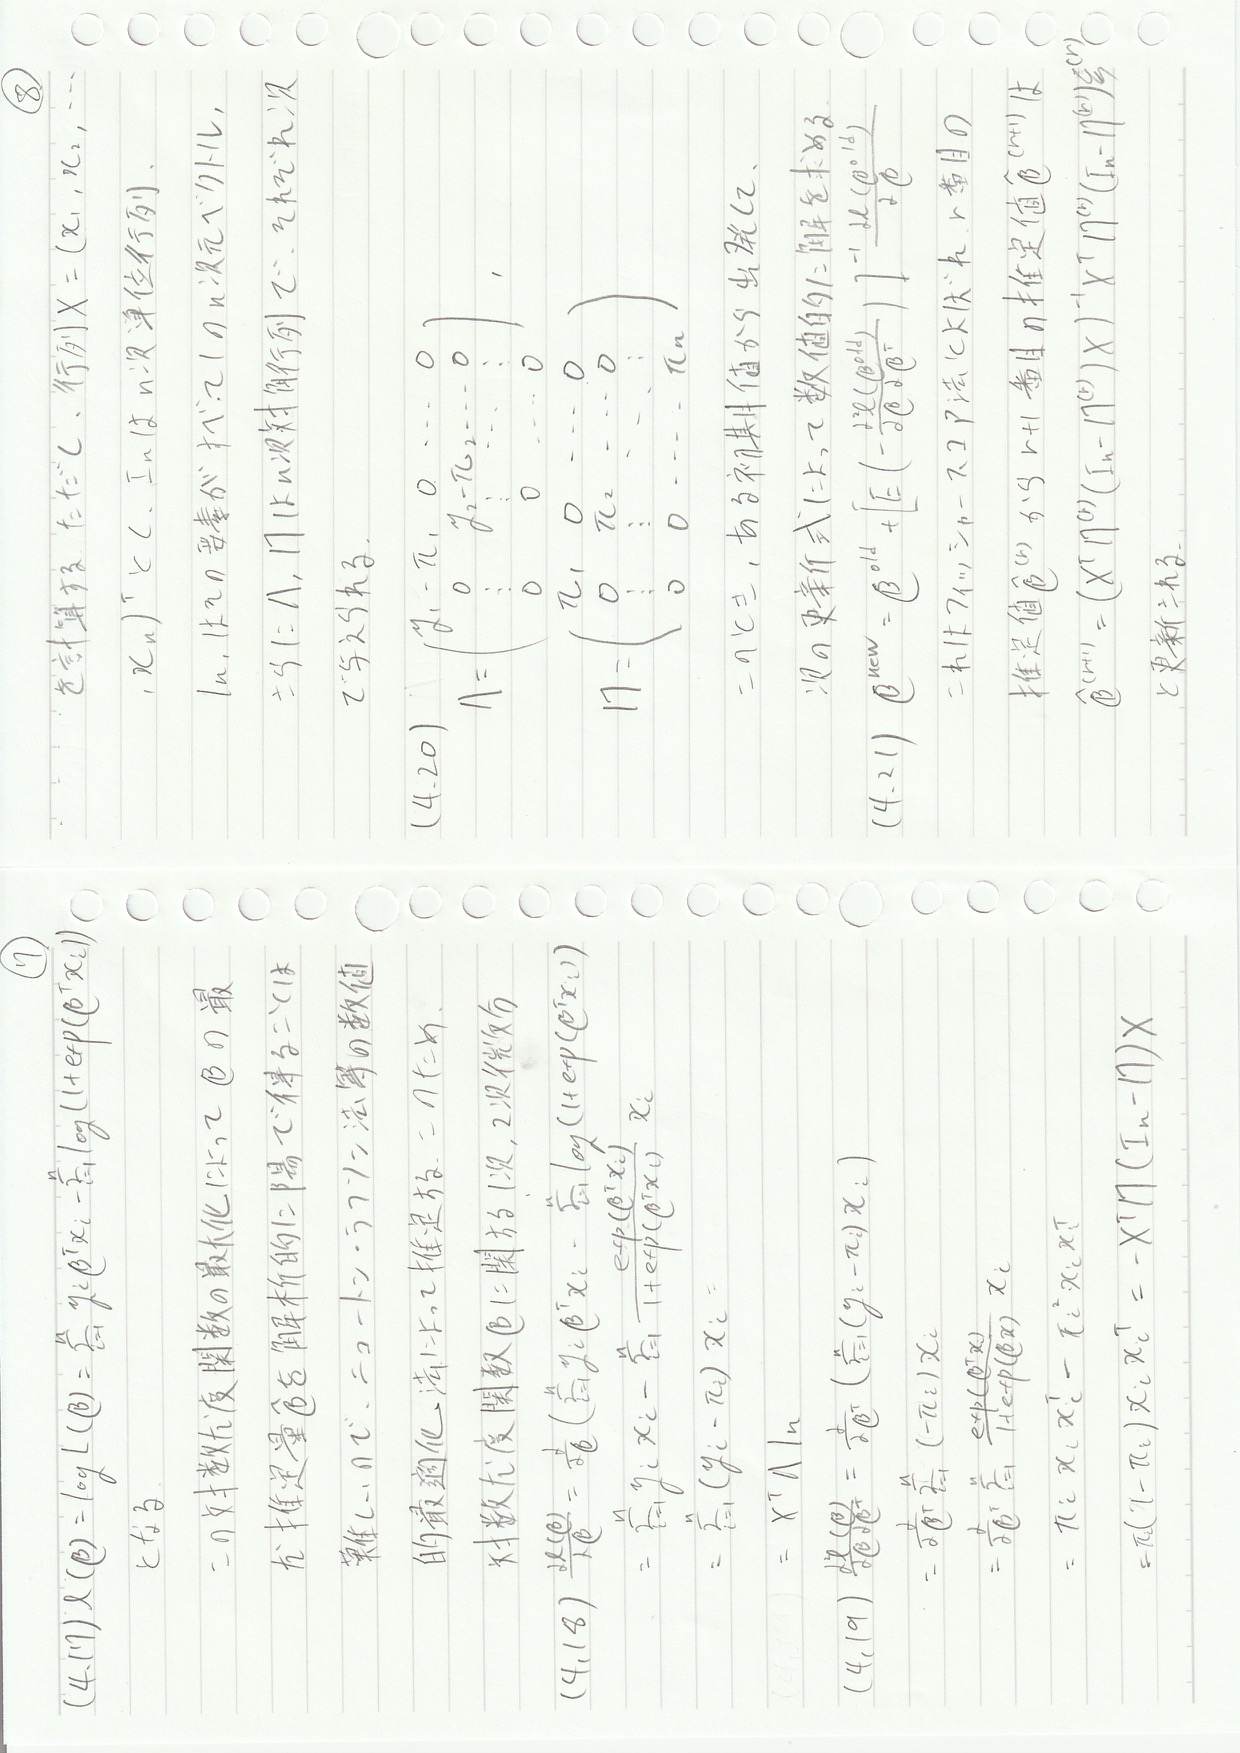 ⑦
(4.17) l(β) = log L(β) = Σ_{i=1}^{n} y_i β^T x_i - Σ_{i=1}^{n} log(1+exp(β^T x_i))
となる.
この対数尤度関数の最大化によってβの最
尤推定量β̂を解析的に陽で得ることは
難しいので、ニュートン・ラフソン法等の数値
的最適化法によって推定する.このため.
対数尤度関数βに関する1次,2次微分
(4,18) ∂l(β)/∂β = ∂/∂β (Σ_{i=1}^{n} y_i β^T x_i - Σ_{i=1}^{n} log(1+exp(β^T x_i))
= Σ_{i=1}^{n} y_i x_i - Σ_{i=1}^{n} exp(β^T x_i)/(1+exp(β^T x_i)) x_i
= Σ_{i=1}^{n} (y_i - π_i) x_i =
= X^T Λ 1n
(4,19) ∂²l(β)/∂β∂β^T = ∂/∂β^T (Σ_{i=1}^{n} (y_i - π_i) x_i)
= ∂/∂β^T Σ_{i=1}^{n} (-π_i) x_i
= ∂/∂β^T Σ_{i=1}^{n} exp(β^T x_i)/(1+exp(βx)) x_i
= π_i x_i x_i^T - π_i² x_i x_i^T
= π_i(1-π_i) x_i x_i^T = -X^T Π (In-Π) X
⑧
を計算する ただし、行列X = (x1, x2, ...
, xn)^T とし、Inはn次単位行列.
1n,はその要素がすべて1のn次元ベクトル,
さらにΛ, Πはn次対角行列で、それぞれ次
で与えられる.
(4.20)
y1-π1 0 ... 0
0 y2-π2 ... 0
Λ =
⋮ ⋮ ... ⋮ ,
0 0 ... 0
π1 0 ... 0
0 π2 ... 0
Π =
⋮ ⋮ ⋱ ⋮
0 0 ... πn
このとき,ある初期値から出発して、
次の更新式によって数値的に解を求める
(4.21) β^new = β^old + [E(-∂²l(β^old)/∂β∂β^T)]^-1 ∂l(β^old)/∂β
これはフィッシャースコア法とよばれ r番目の
推定値β̂^(r)からr+1番目の推定値β̂^(r+1)は
β̂^(r+1) = (X^T Π^(r) (In-Π^(r)) X)^-1 X^T Π^(r) (In-Π^(r)) ξ^(r)
と更新される.